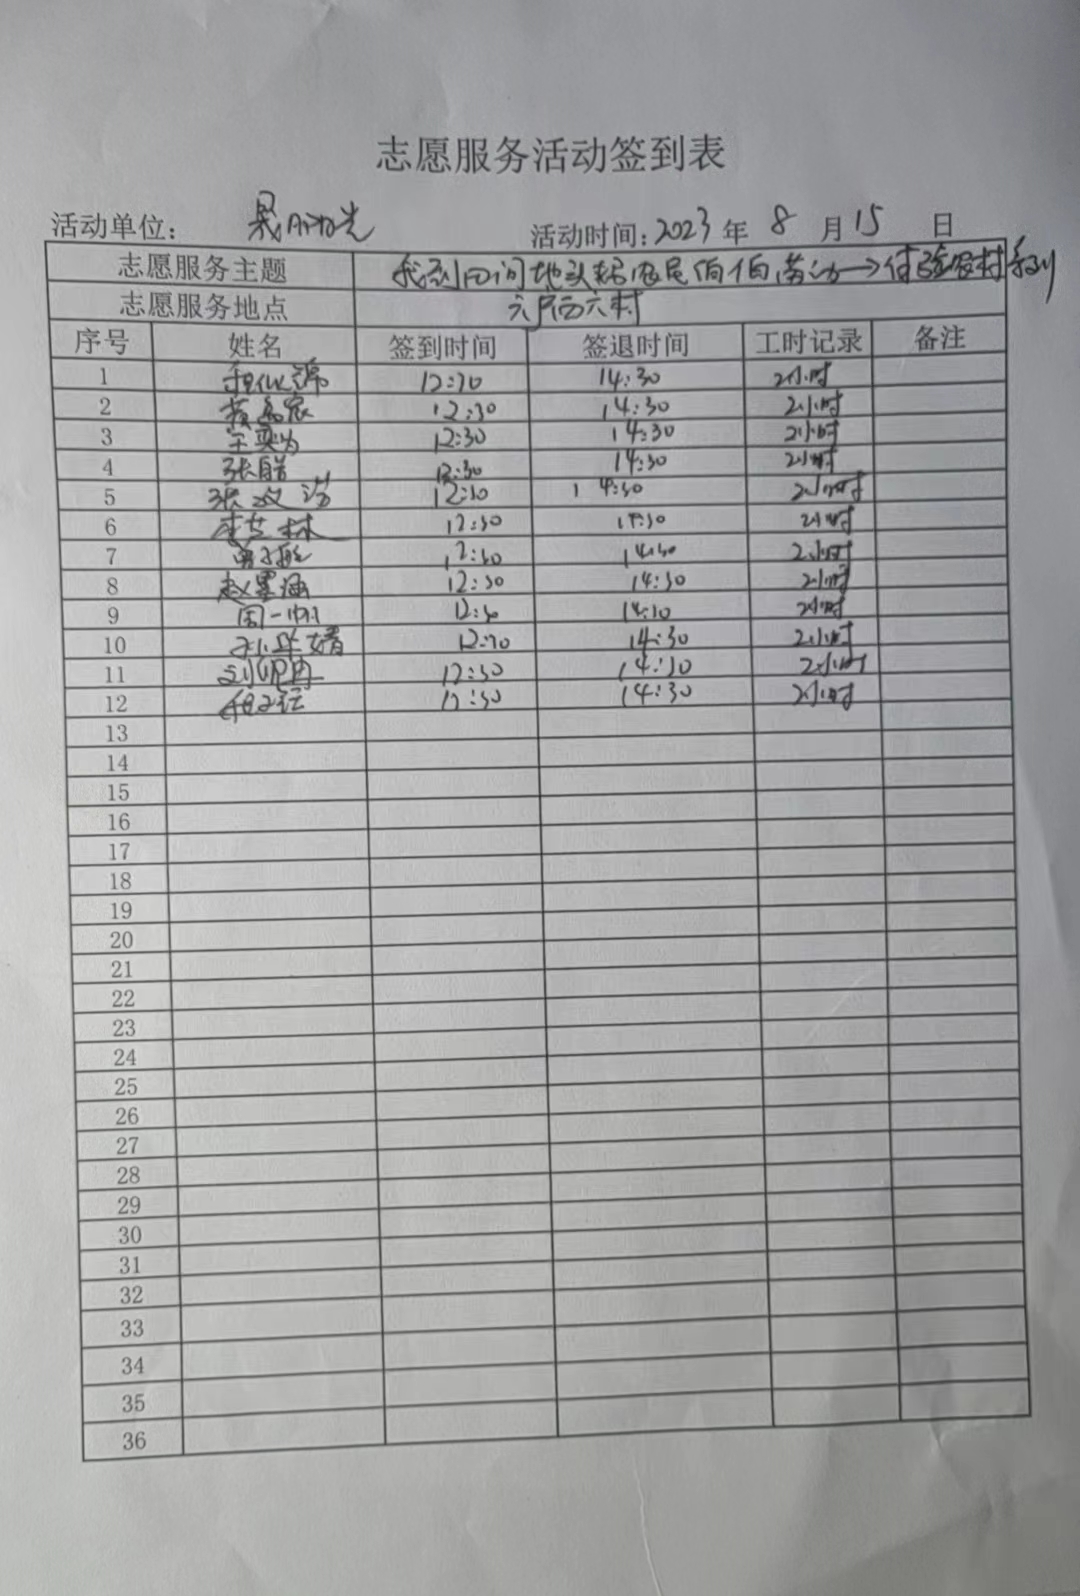 志愿服务活动签到表
活动单位： 活动时间：2023年 8 月 15 日
志愿服务主题 我到田间地头帮农民伯伯劳动
志愿服务地点 六村
序号 姓名 签到时间 签退时间 工时记录 备注
1 12:30 14:30 2小时
2 12:30 14:30 2小时
3 王奕为 12:30 14:30 2小时
4 张皓 12:30 14:30 2小时
5 张文浩 12:30 14:30 2小时
6 李芝林 12:30 14:30 2小时
7 12:30 14:30 2小时
8 赵墨涵 12:30 14:30 2小时
9 周一帆 12:30 14:30 2小时
10 12:30 14:30 2小时
11 12:30 14:30 2小时
12 12:30 14:30 2小时
13
14
15
16
17
18
19
20
21
22
23
24
25
26
27
28
29
30
31
32
33
34
35
36